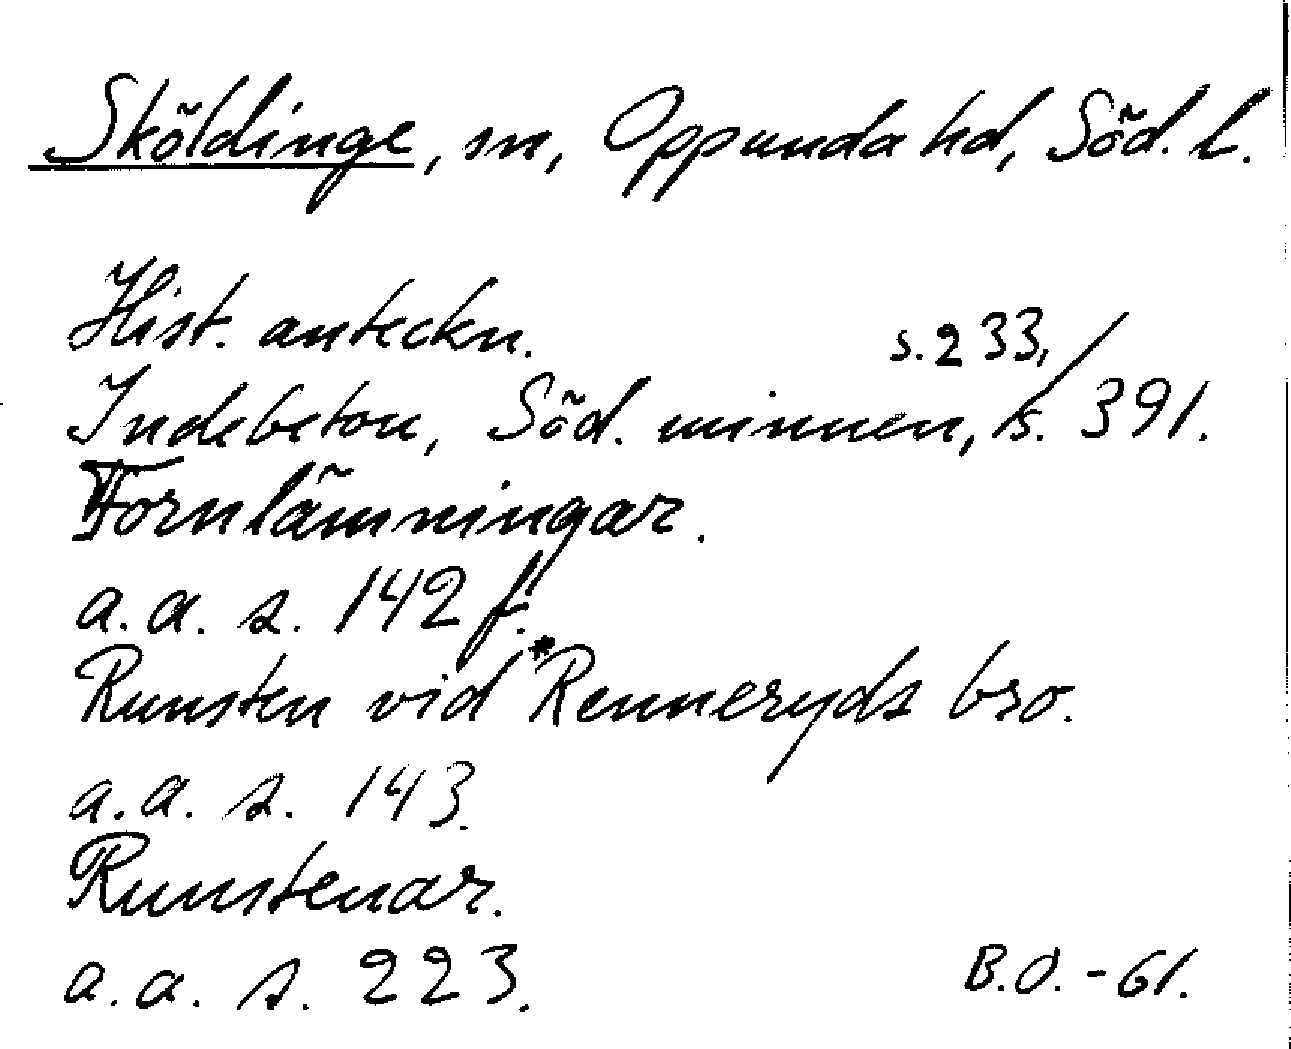 Sköldinge, sn, Oppunda hd, Söd. l.
Hist. anteckn. s. 233,
Indebetou, Söd. minnen, s. 391.
Fornlämningar.
a. a. s. 142 f.
Runsten vid *Renneryds bro.
a. a. s. 143.
Runstenar.
a. a. s. 223. B.O. - 61.